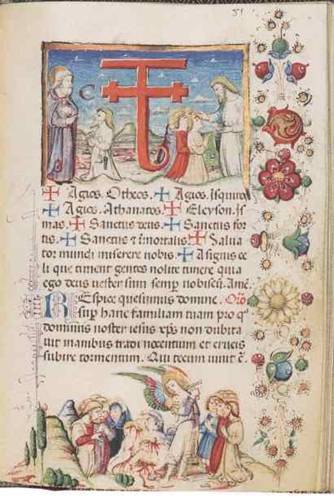 51
✠ Agios. Otheos. ✠ Agios. Isquiro
✠ Agios. Athanatos. ✠ Eleyson. I
mas. ✠ Sanctus deus. ✠ Sanctus for
tis. ✠ Sanctus & imortalis ✠ Salua
tor mundi miserere nobis. ✠ A signis ce
li que timent gentes nolite timere quia
ego deus uester sum semp nobiscū. Amē.
REspice quesumus domine. Orō
sup hanc familiam tuam pro q̄
dominus noster iesus xp̄s non dubita
uit manibus tradi nocentium et crucis
subire tormentum. Qui tecum uiuit